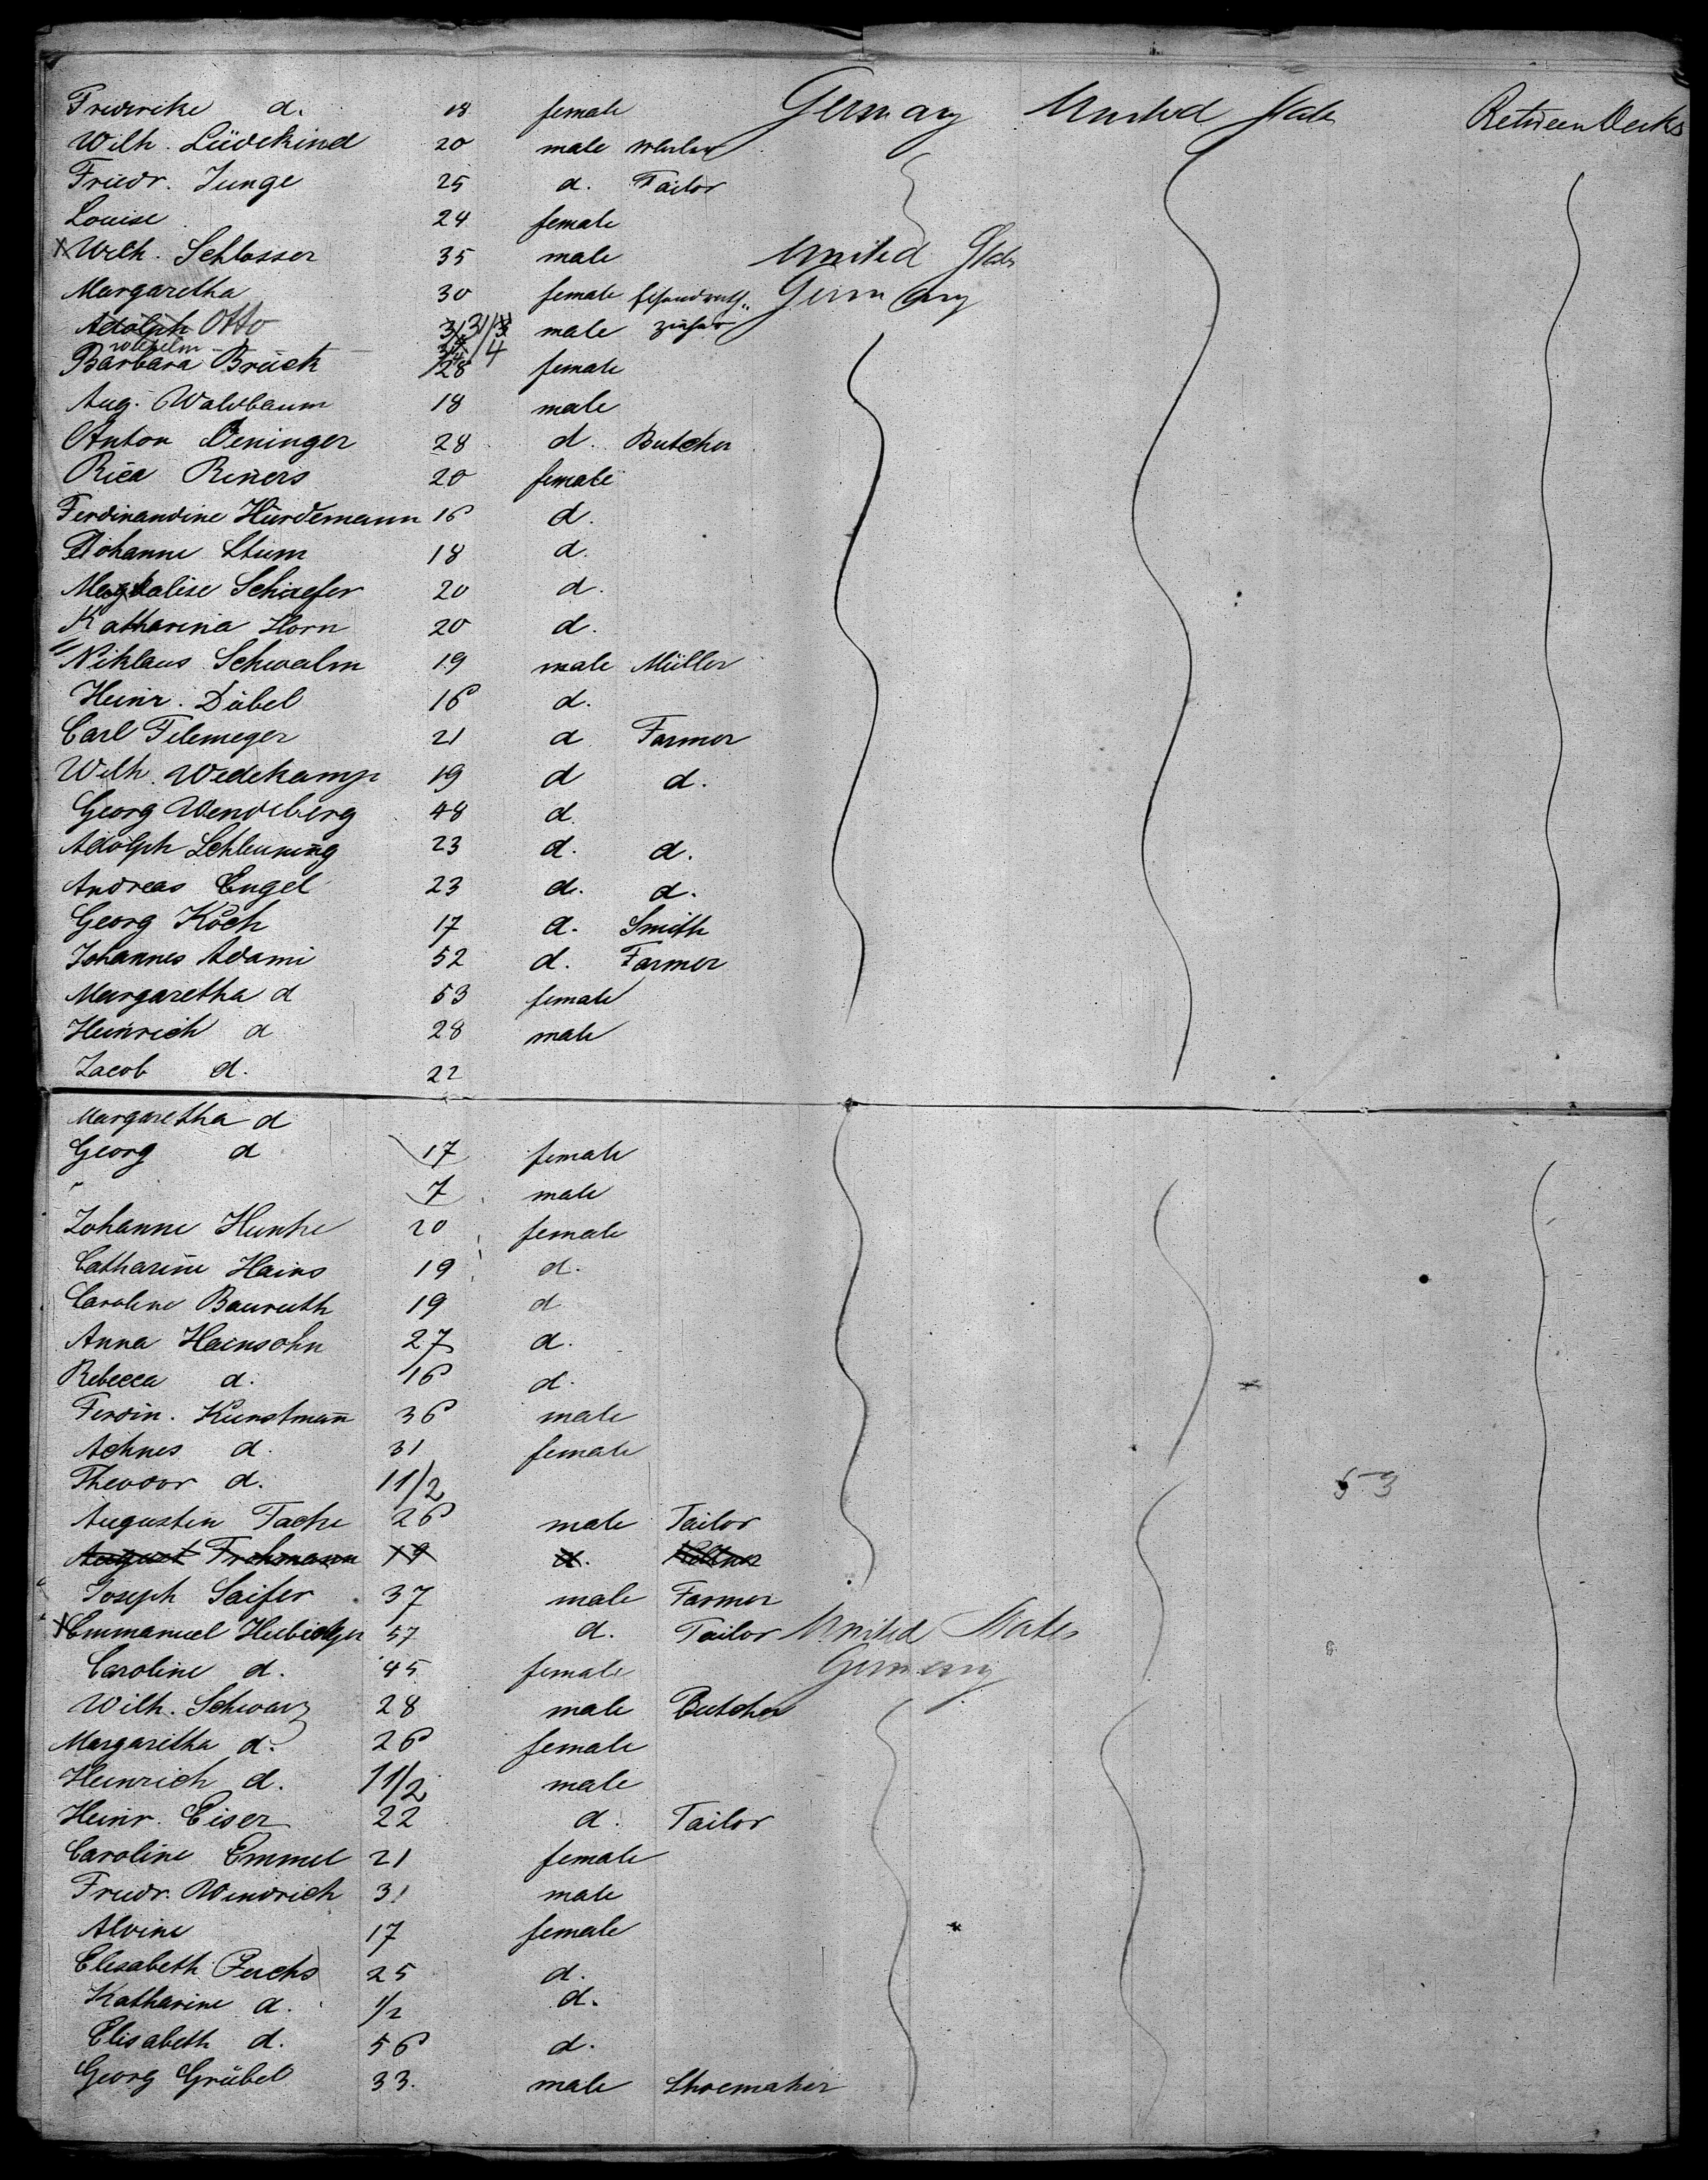 Friederike d. 18 female Germany United States Between Decks
Wilh. Lüdekind 20 male
Friedr. Junge 25 d. Tailor
Louise 24 female
X Wilh. Schlosser 35 male United States
Margaretha 30 female Germany
Adolph Otto male
Wilhelm 4
Barbara Brück 28 female
Aug. Waldbaum 18 male
Anton Deninger 28 d. Butcher
Rica Reiners 20 female
Ferdinandine Hürdemann 16 d.
Johanne Stum 18 d.
Magdalise Schaefer 20 d.
Katharina Horn 20 d.
Niklaus Schwalm 19 male Müller
Heinr. Däbel 16 d.
Carl Filemeyer 21 d Farmer
Wilh. Wedekamp 19 d d.
Georg Wendelberg 48 d.
Adolph Schleuning 23 d. d.
Andreas Engel 23 d. d.
Georg Koch 17 d. Smith
Johannes Adami 52 d. Farmer
Margaretha d 53 female
Heinrich d 28 male
Jacob d. 22
Margaretha d
Georg d 17 female
7 male
Johanne Huntze 20 female
Catharine Hains 19 d.
Caroline Bauruth 19 d
Anna Hainsohn 27 d.
Rebecca d. 16 d.
Ferdin. Kunstmann 36 male
Achnes d. 31 female
Theodor d. 11/2 53
Augustin Tacke 26 male Tailor
August Frohmann 19 d. Kellner
Joseph Saifer 37 male Farmer
X Emmanuel 57 d. Tailor United States
Caroline d. 45 female Germany
Wilh. Schwarz 28 male Butcher
Margaretha d. 26 female
Heinrich d. 11/2 male
Heinr. Eiser 22 d. Tailor
Caroline Emmel 21 female
Friedr. Windrich 31 male
Alvine 17 female
Elisabeth Fuchs 25 d.
Katharine d. 1/2 d.
Elisabeth d. 56 d.
Georg Grübel 33. male Shoemaker